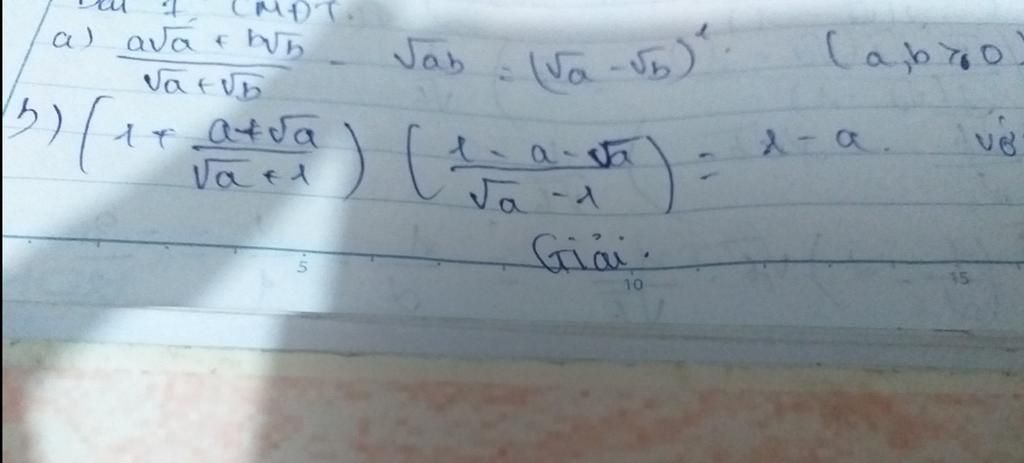 Bài 1. CMĐT.
a) (a√a + b√b)/(√a + √b) - √ab = (√a - √b)². (a,b ≥ 0)
b) (1 + (a+√a)/(√a + 1)) ((1 - a - √a)/(√a - 1)) = 1 - a. với
Giải.
5 10 15